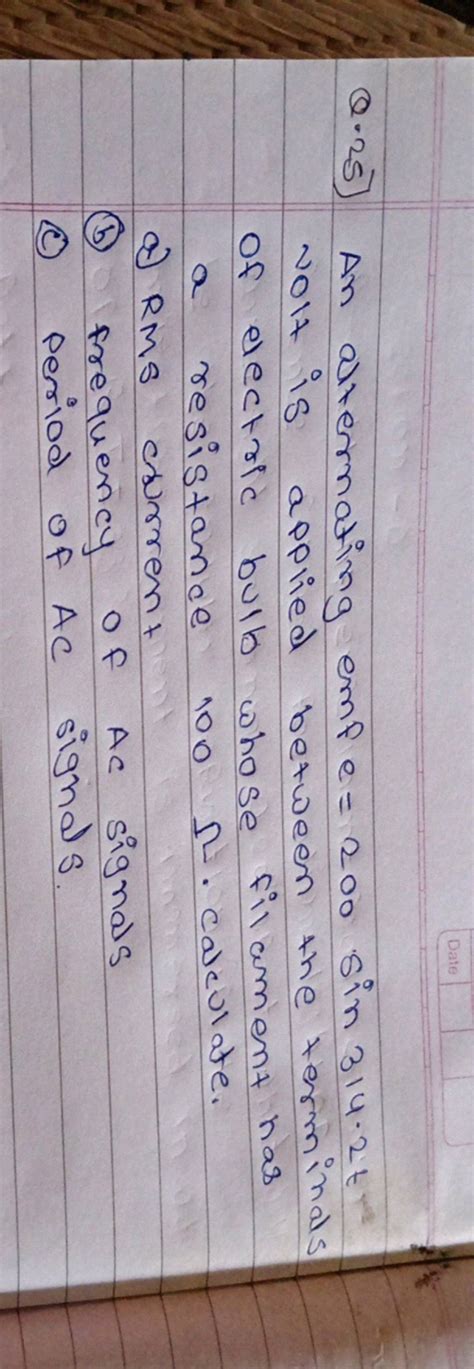 Date
Q.25) An alternating emf e = 200 sin 314.2t
volt is applied between the terminals
of electric bulb whose filament has
a resistance 100 Ω. calculate.
a) RMS current
(b) frequency of AC signals
(c) period of AC signals.